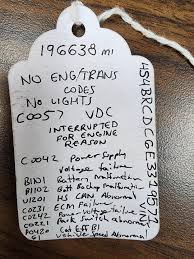 196638 mi
NO ENG/TRANS
CODES
NO LIGHTS
C0057 VDC
INTERRUPTED
FOR ENGINE
REASON
C0042 Power Supply
Voltage failure
B1101 Battery Malfunction
B1102 Batt Backup Malfunction
U1201 HS CAN Abnormal
C0231 ECM Abnormal
C0242 Power Voltage failure
C0221 Park Switch Abnormal
P0420 Cat Eff B1
Vehicle Speed Abnormal